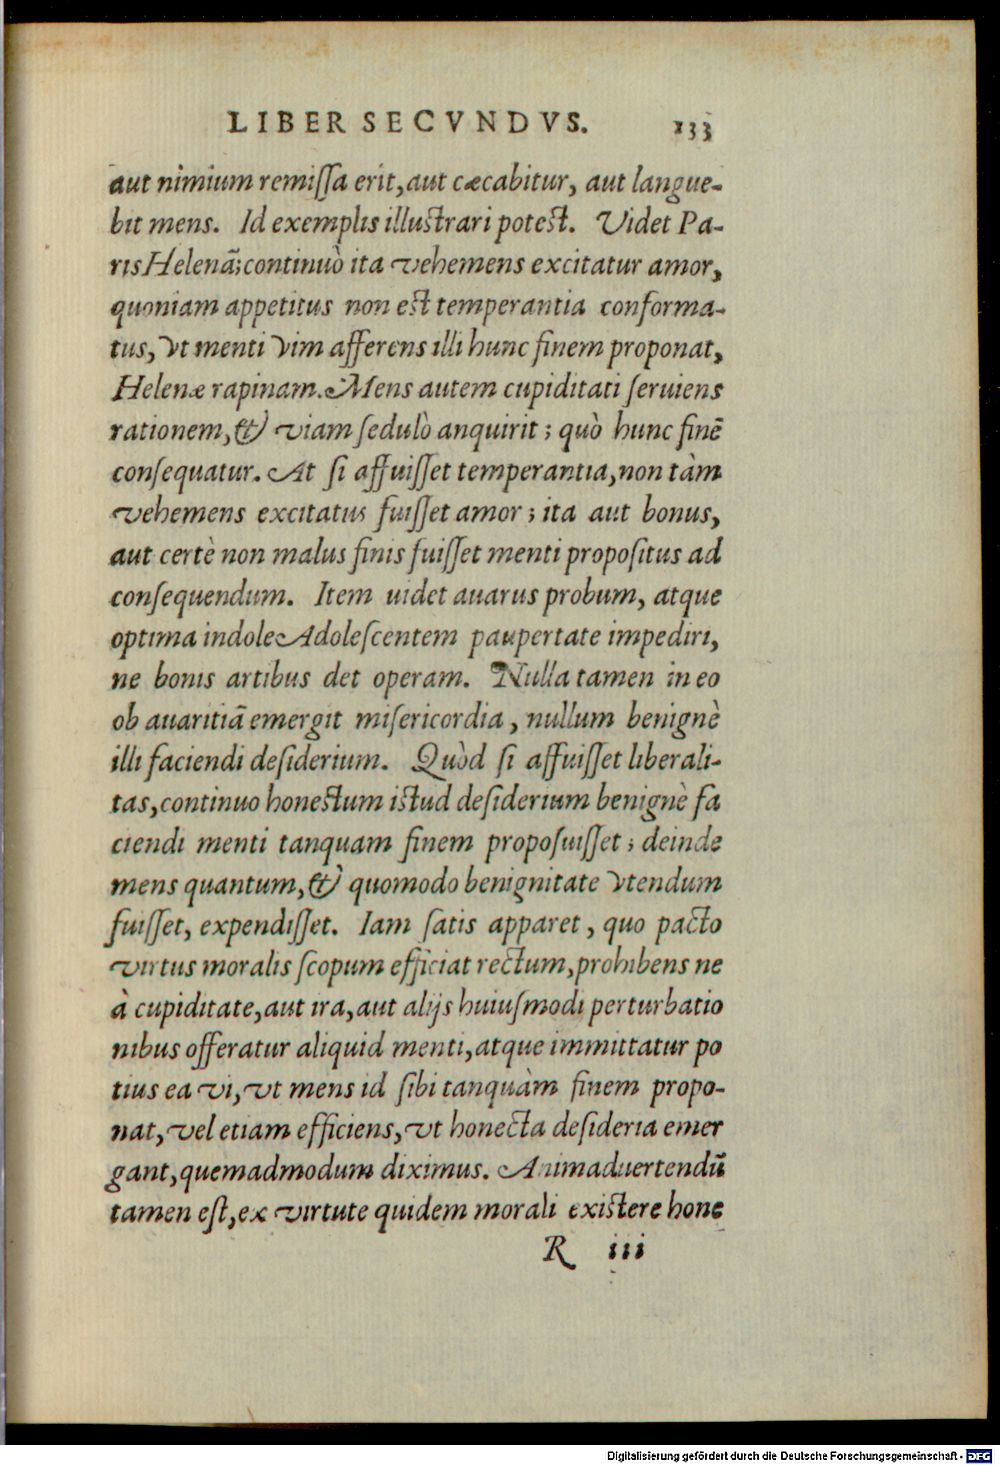 LIBER SECVNDVS. 133
aut nimium remiſſa erit, aut cæcabitur, aut langue-
bit mens. Id exemplis illuſtrari poteſt. Videt Pa-
ris Helenã; continuò ita vehemens excitatur amor,
quoniam appetitus non eſt temperantia conforma-
tus, vt menti vim afferens illi hunc finem proponat,
Helenæ rapinam. Mens autem cupiditati ſeruiens
rationem, & viam ſedulò anquirit; quò hunc finẽ
conſequatur. At ſi affuiſſet temperantia, non tàm
vehemens excitatus fuiſſet amor; ita aut bonus,
aut certè non malus finis fuiſſet menti propoſitus ad
conſequendum. Item uidet auarus probum, atque
optima indole Adoleſcentem paupertate impediri,
ne bonis artibus det operam. Nulla tamen in eo
ob auaritiã emergit miſericordia, nullum benignè
illi faciendi deſiderium. Quòd ſi affuiſſet liberali-
tas, continuo honeſtum iſtud deſiderium benignè fa
ciendi menti tanquam finem propoſuiſſet; deinde
mens quantum, & quomodo benignitate vtendum
fuiſſet, expendiſſet. Iam ſatis apparet, quo pacto
virtus moralis ſcopum efficiat rectum, prohibens ne
à cupiditate, aut ira, aut alijs huiuſmodi perturbatio
nibus offeratur aliquid menti, atque immittatur po
tius ea vi, vt mens id ſibi tanquàm finem propo-
nat, vel etiam efficiens, vt honecta deſideria emer
gant, quemadmodum diximus. Animaduertendũ
tamen eſt, ex virtute quidem morali exiſtere hone
R iii
Digitalisierung gefördert durch die Deutsche Forschungsgemeinschaft - DFG